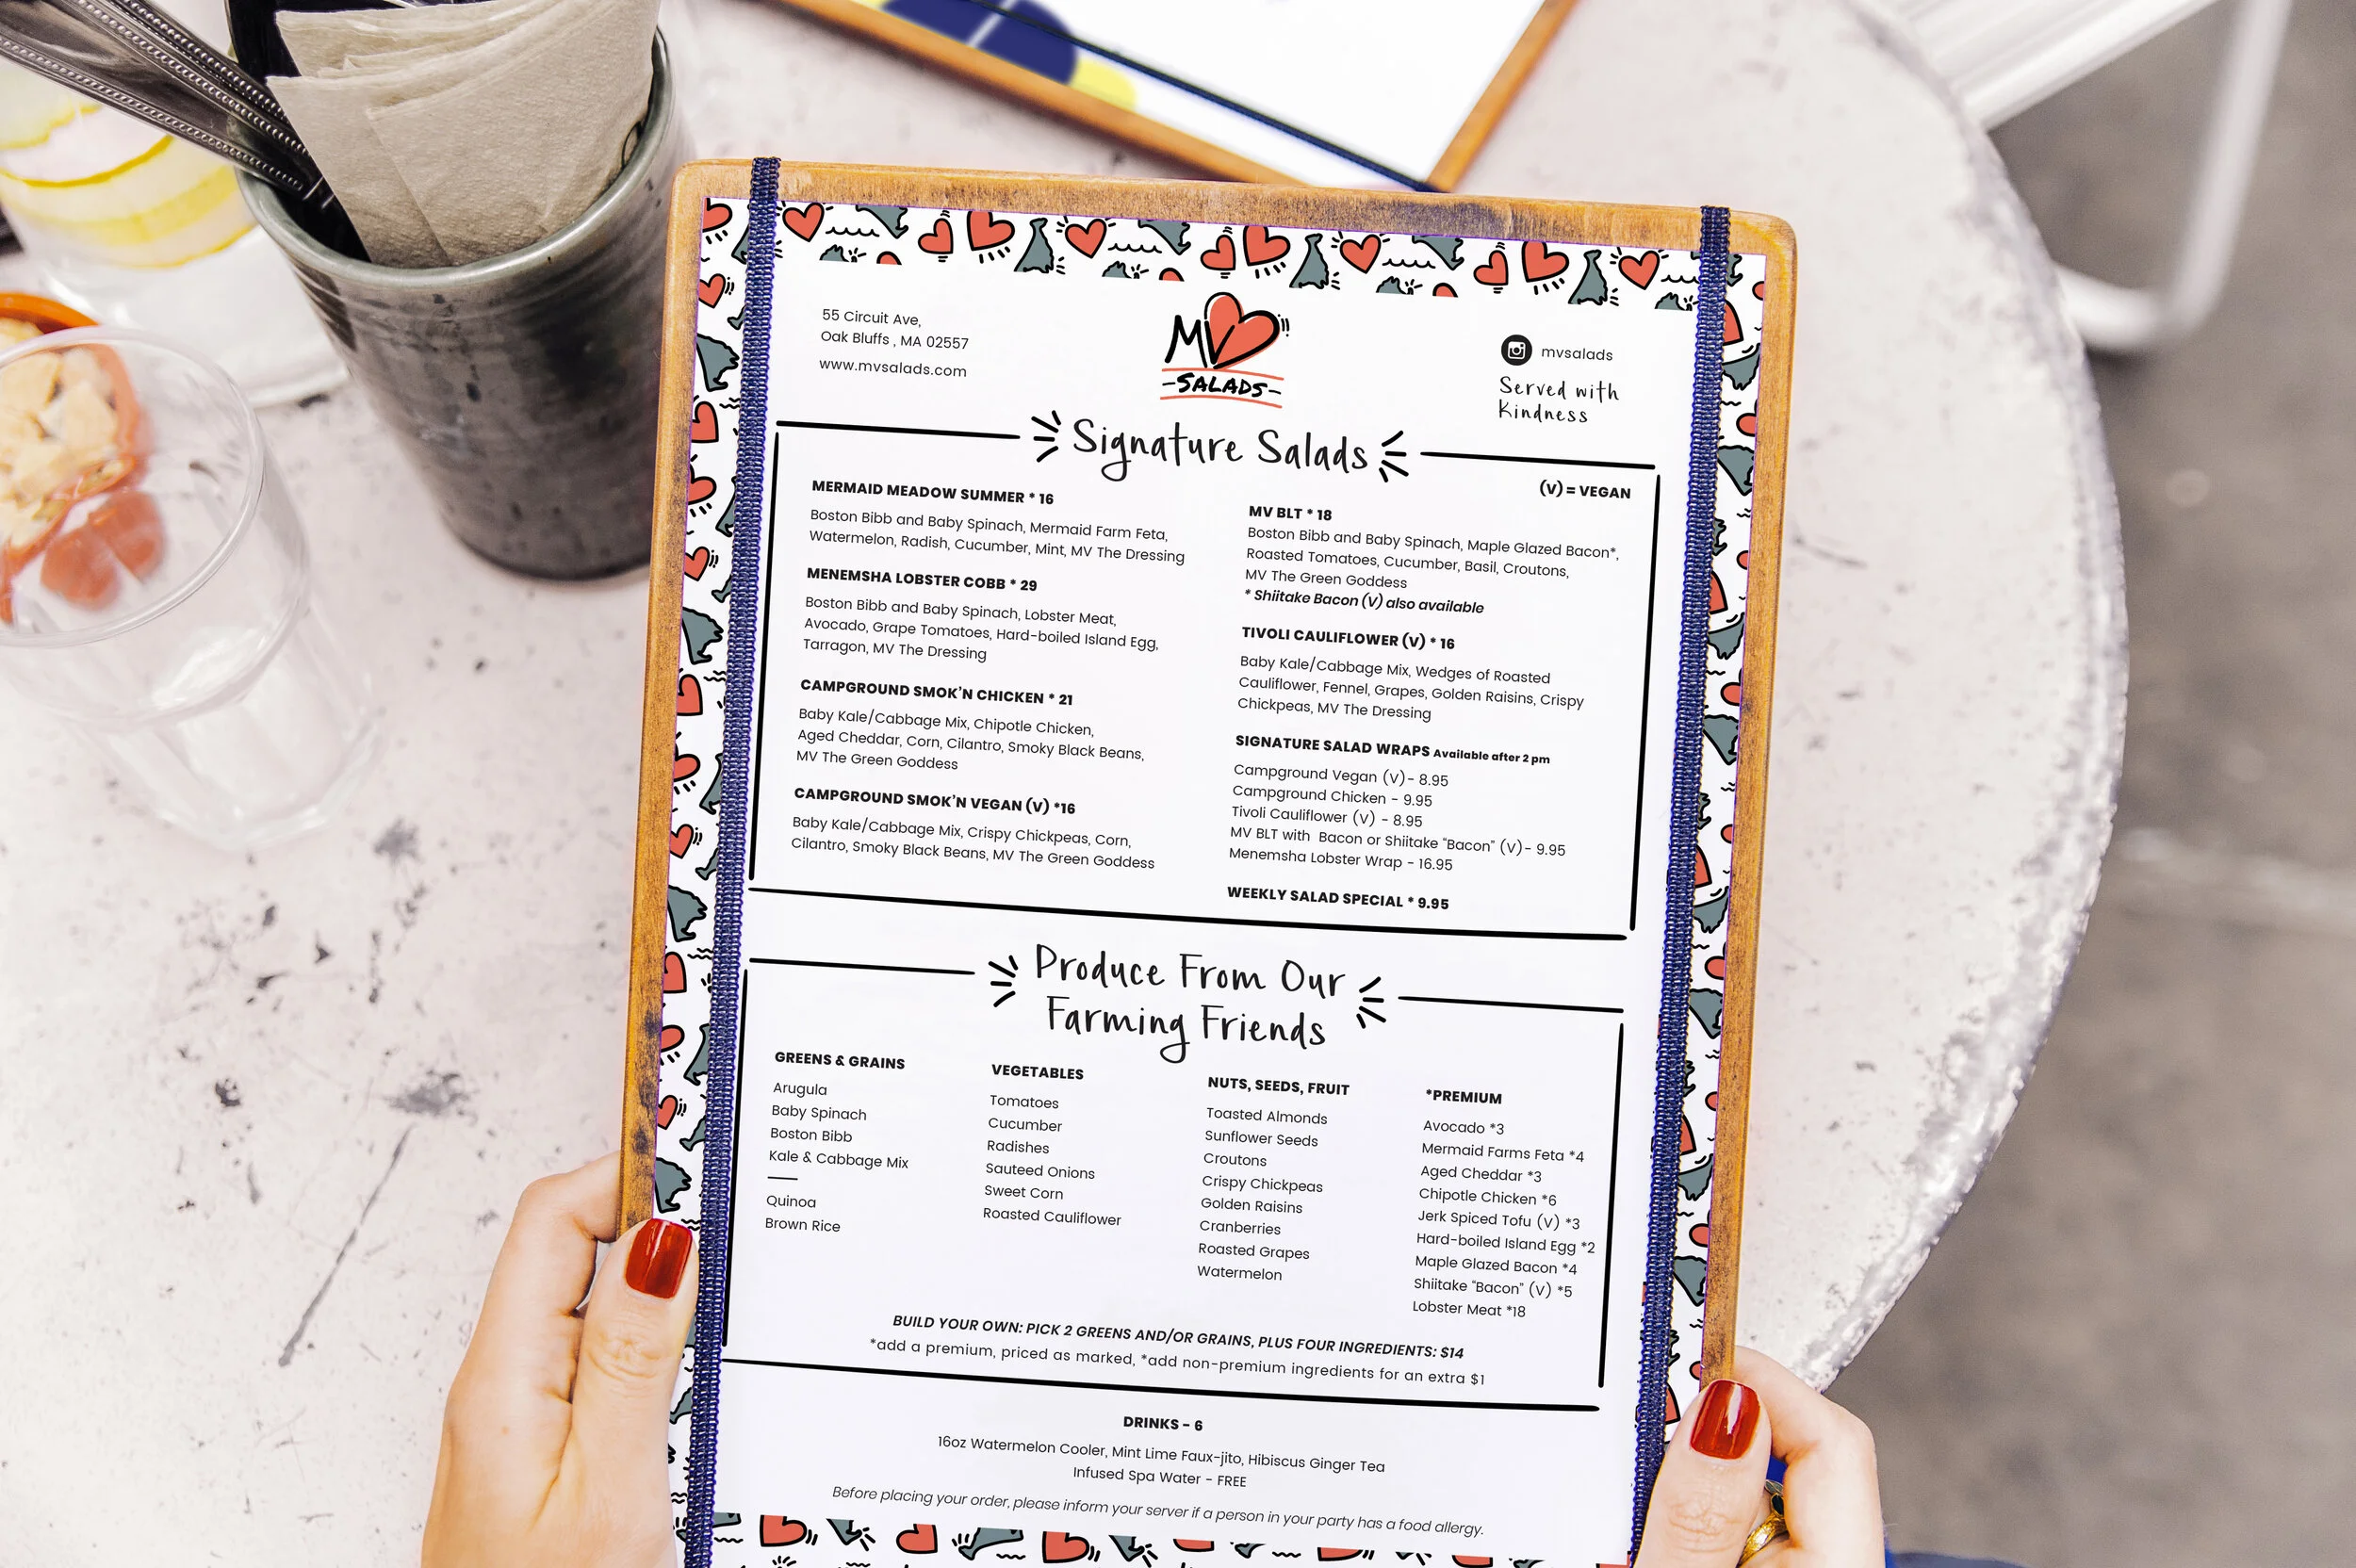 55 Circuit Ave,
Oak Bluffs , MA 02557
www.mvsalads.com
MV
-SALADS-
mvsalads
Served with
Kindness
Signature Salads
(V) = VEGAN
MERMAID MEADOW SUMMER * 16
Boston Bibb and Baby Spinach, Mermaid Farm Feta,
Watermelon, Radish, Cucumber, Mint, MV The Dressing
MENEMSHA LOBSTER COBB * 29
Boston Bibb and Baby Spinach, Lobster Meat,
Avocado, Grape Tomatoes, Hard-boiled Island Egg,
Tarragon, MV The Dressing
CAMPGROUND SMOK'N CHICKEN * 21
Baby Kale/Cabbage Mix, Chipotle Chicken,
Aged Cheddar, Corn, Cilantro, Smoky Black Beans,
MV The Green Goddess
CAMPGROUND SMOK'N VEGAN (V) *16
Baby Kale/Cabbage Mix, Crispy Chickpeas, Corn,
Cilantro, Smoky Black Beans, MV The Green Goddess
MV BLT * 18
Boston Bibb and Baby Spinach, Maple Glazed Bacon*,
Roasted Tomatoes, Cucumber, Basil, Croutons,
MV The Green Goddess
* Shiitake Bacon (V) also available
TIVOLI CAULIFLOWER (V) * 16
Baby Kale/Cabbage Mix, Wedges of Roasted
Cauliflower, Fennel, Grapes, Golden Raisins, Crispy
Chickpeas, MV The Dressing
SIGNATURE SALAD WRAPS Available after 2 pm
Campground Vegan (V)- 8.95
Campground Chicken - 9.95
Tivoli Cauliflower (V) - 8.95
MV BLT with Bacon or Shiitake "Bacon" (V)- 9.95
Menemsha Lobster Wrap - 16.95
WEEKLY SALAD SPECIAL * 9.95
Produce From Our
Farming Friends
GREENS & GRAINS
Arugula
Baby Spinach
Boston Bibb
Kale & Cabbage Mix
Quinoa
Brown Rice
VEGETABLES
Tomatoes
Cucumber
Radishes
Sauteed Onions
Sweet Corn
Roasted Cauliflower
NUTS, SEEDS, FRUIT
Toasted Almonds
Sunflower Seeds
Croutons
Crispy Chickpeas
Golden Raisins
Cranberries
Roasted Grapes
Watermelon
*PREMIUM
Avocado *3
Mermaid Farms Feta *4
Aged Cheddar *3
Chipotle Chicken *6
Jerk Spiced Tofu (V) *3
Hard-boiled Island Egg *2
Maple Glazed Bacon *4
Shiitake "Bacon" (V) *5
Lobster Meat *18
BUILD YOUR OWN: PICK 2 GREENS AND/OR GRAINS, PLUS FOUR INGREDIENTS: $14
*add a premium, priced as marked, *add non-premium ingredients for an extra $1
DRINKS - 6
16oz Watermelon Cooler, Mint Lime Faux-jito, Hibiscus Ginger Tea
Infused Spa Water - FREE
Before placing your order, please inform your server if a person in your party has a food allergy.